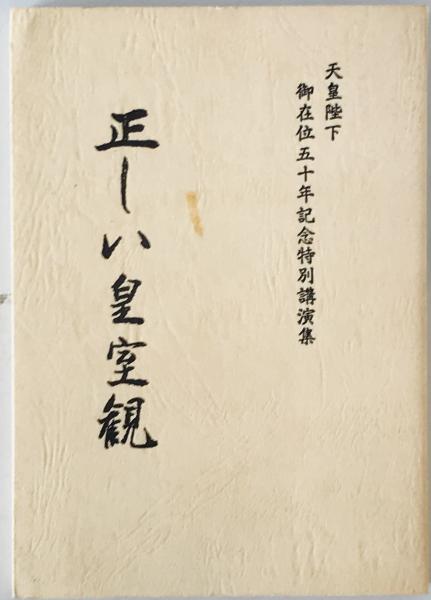 天皇陛下
御在位五十年記念特別講演集
正しい皇室観